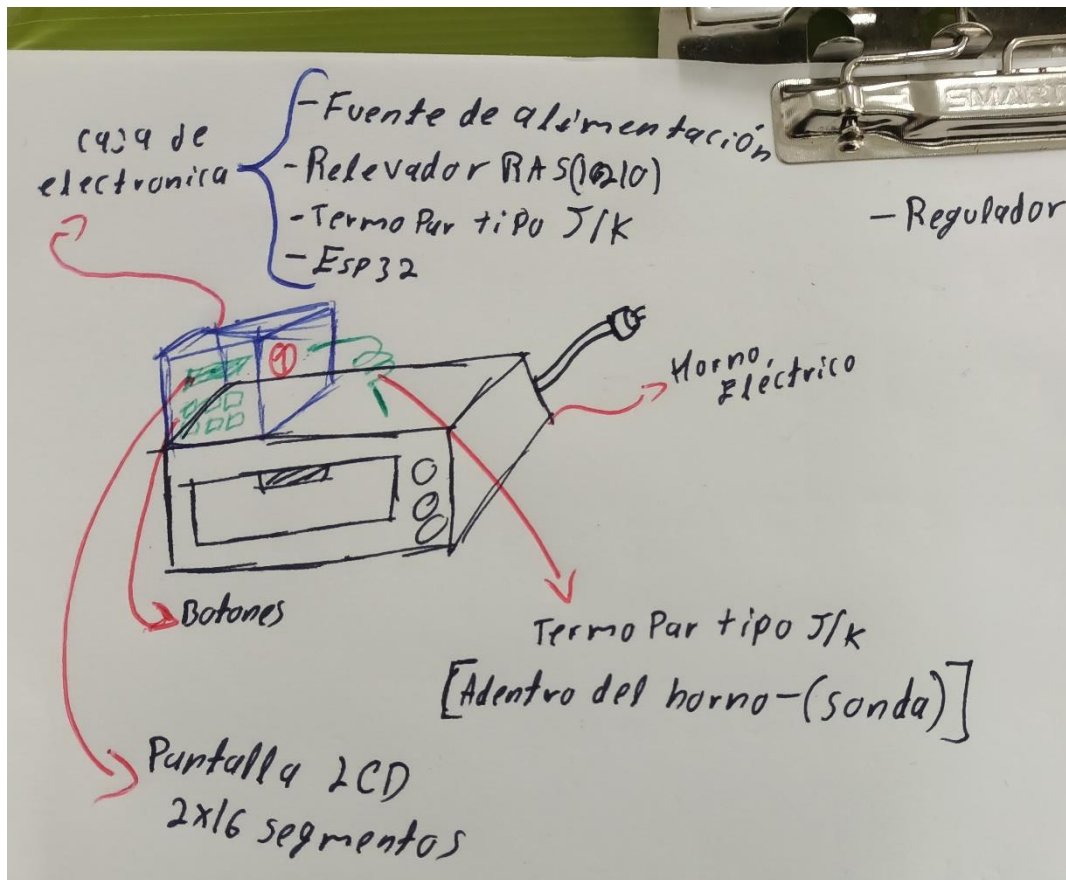 caja de
electronica
- Fuente de alimentación
- Relevador RAS(1210)
- Termo Par tipo J/K
- Esp32
- Regulador
Horno
Eléctrico
Botones
Termo Par tipo J/K
[Adentro del horno-(sonda)]
Pantalla LCD
2x16 segmentos
SMART